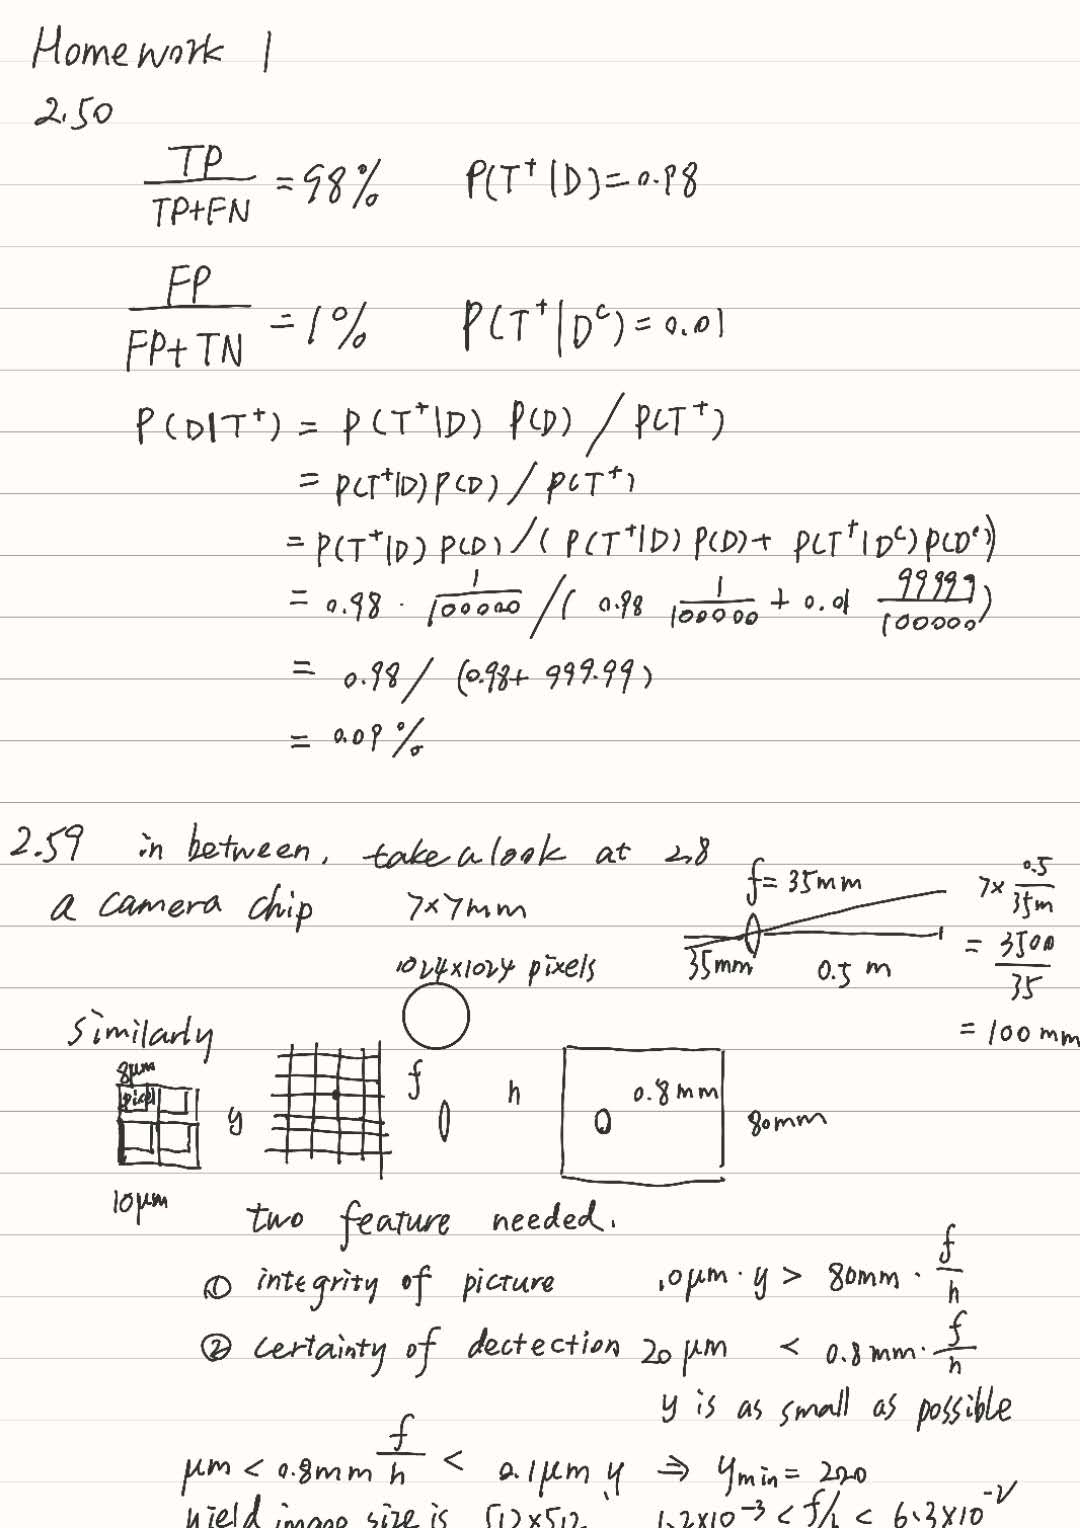 Homework 1
2.50
TP / TP+FN = 98% P(T⁺|D)=0.98
FP / FP+TN = 1% P(T⁺|Dᶜ)=0.01
P(D|T⁺) = P(T⁺|D) P(D) / P(T⁺)
= P(T⁺|D) P(D) / P(T⁺)
= P(T⁺|D) P(D) / ( P(T⁺|D) P(D) + P(T⁺|Dᶜ) P(Dᶜ))
= 0.98 · 1/100000 / ( 0.98 1/100000 + 0.01 99999/100000 )
= 0.98 / (0.98+ 999.99)
= 0.09%
2.59 in between, take a look at 2.8
a camera chip 7×7mm f=35mm 7× 0.5/35m
35mm 0.5 m = 3500/35
1024×1024 pixels
similarly = 100 mm
8μm
y f h 0.8mm 80mm
10μm
two feature needed.
① integrity of picture .0μm·y > 80mm · f/h
② certainty of dectection 20μm < 0.8mm· f/h
y is as small as possible
μm < 0.8mm f/h < 0.1μm y ⇒ ymin = 200
yield image size is 512×512, 1.2×10⁻³ < f/h < 6.3×10⁻²